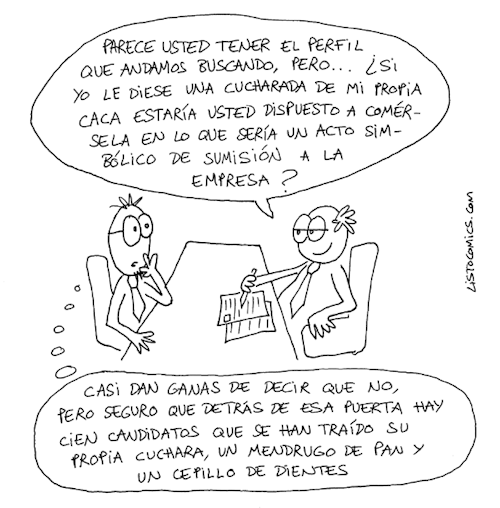 PARECE USTED TENER EL PERFIL
QUE ANDAMOS BUSCANDO, PERO... ¿SI
YO LE DIESE UNA CUCHARADA DE MI PROPIA
CACA ESTARÍA USTED DISPUESTO A COMÉR-
SELA EN LO QUE SERÍA UN ACTO SIM-
BÓLICO DE SUMISIÓN A LA
EMPRESA?
LISTOCOMICS.COM
CASI DAN GANAS DE DECIR QUE NO,
PERO SEGURO QUE DETRÁS DE ESA PUERTA HAY
CIEN CANDIDATOS QUE SE HAN TRAÍDO SU
PROPIA CUCHARA, UN MENDRUGO DE PAN Y
UN CEPILLO DE DIENTES